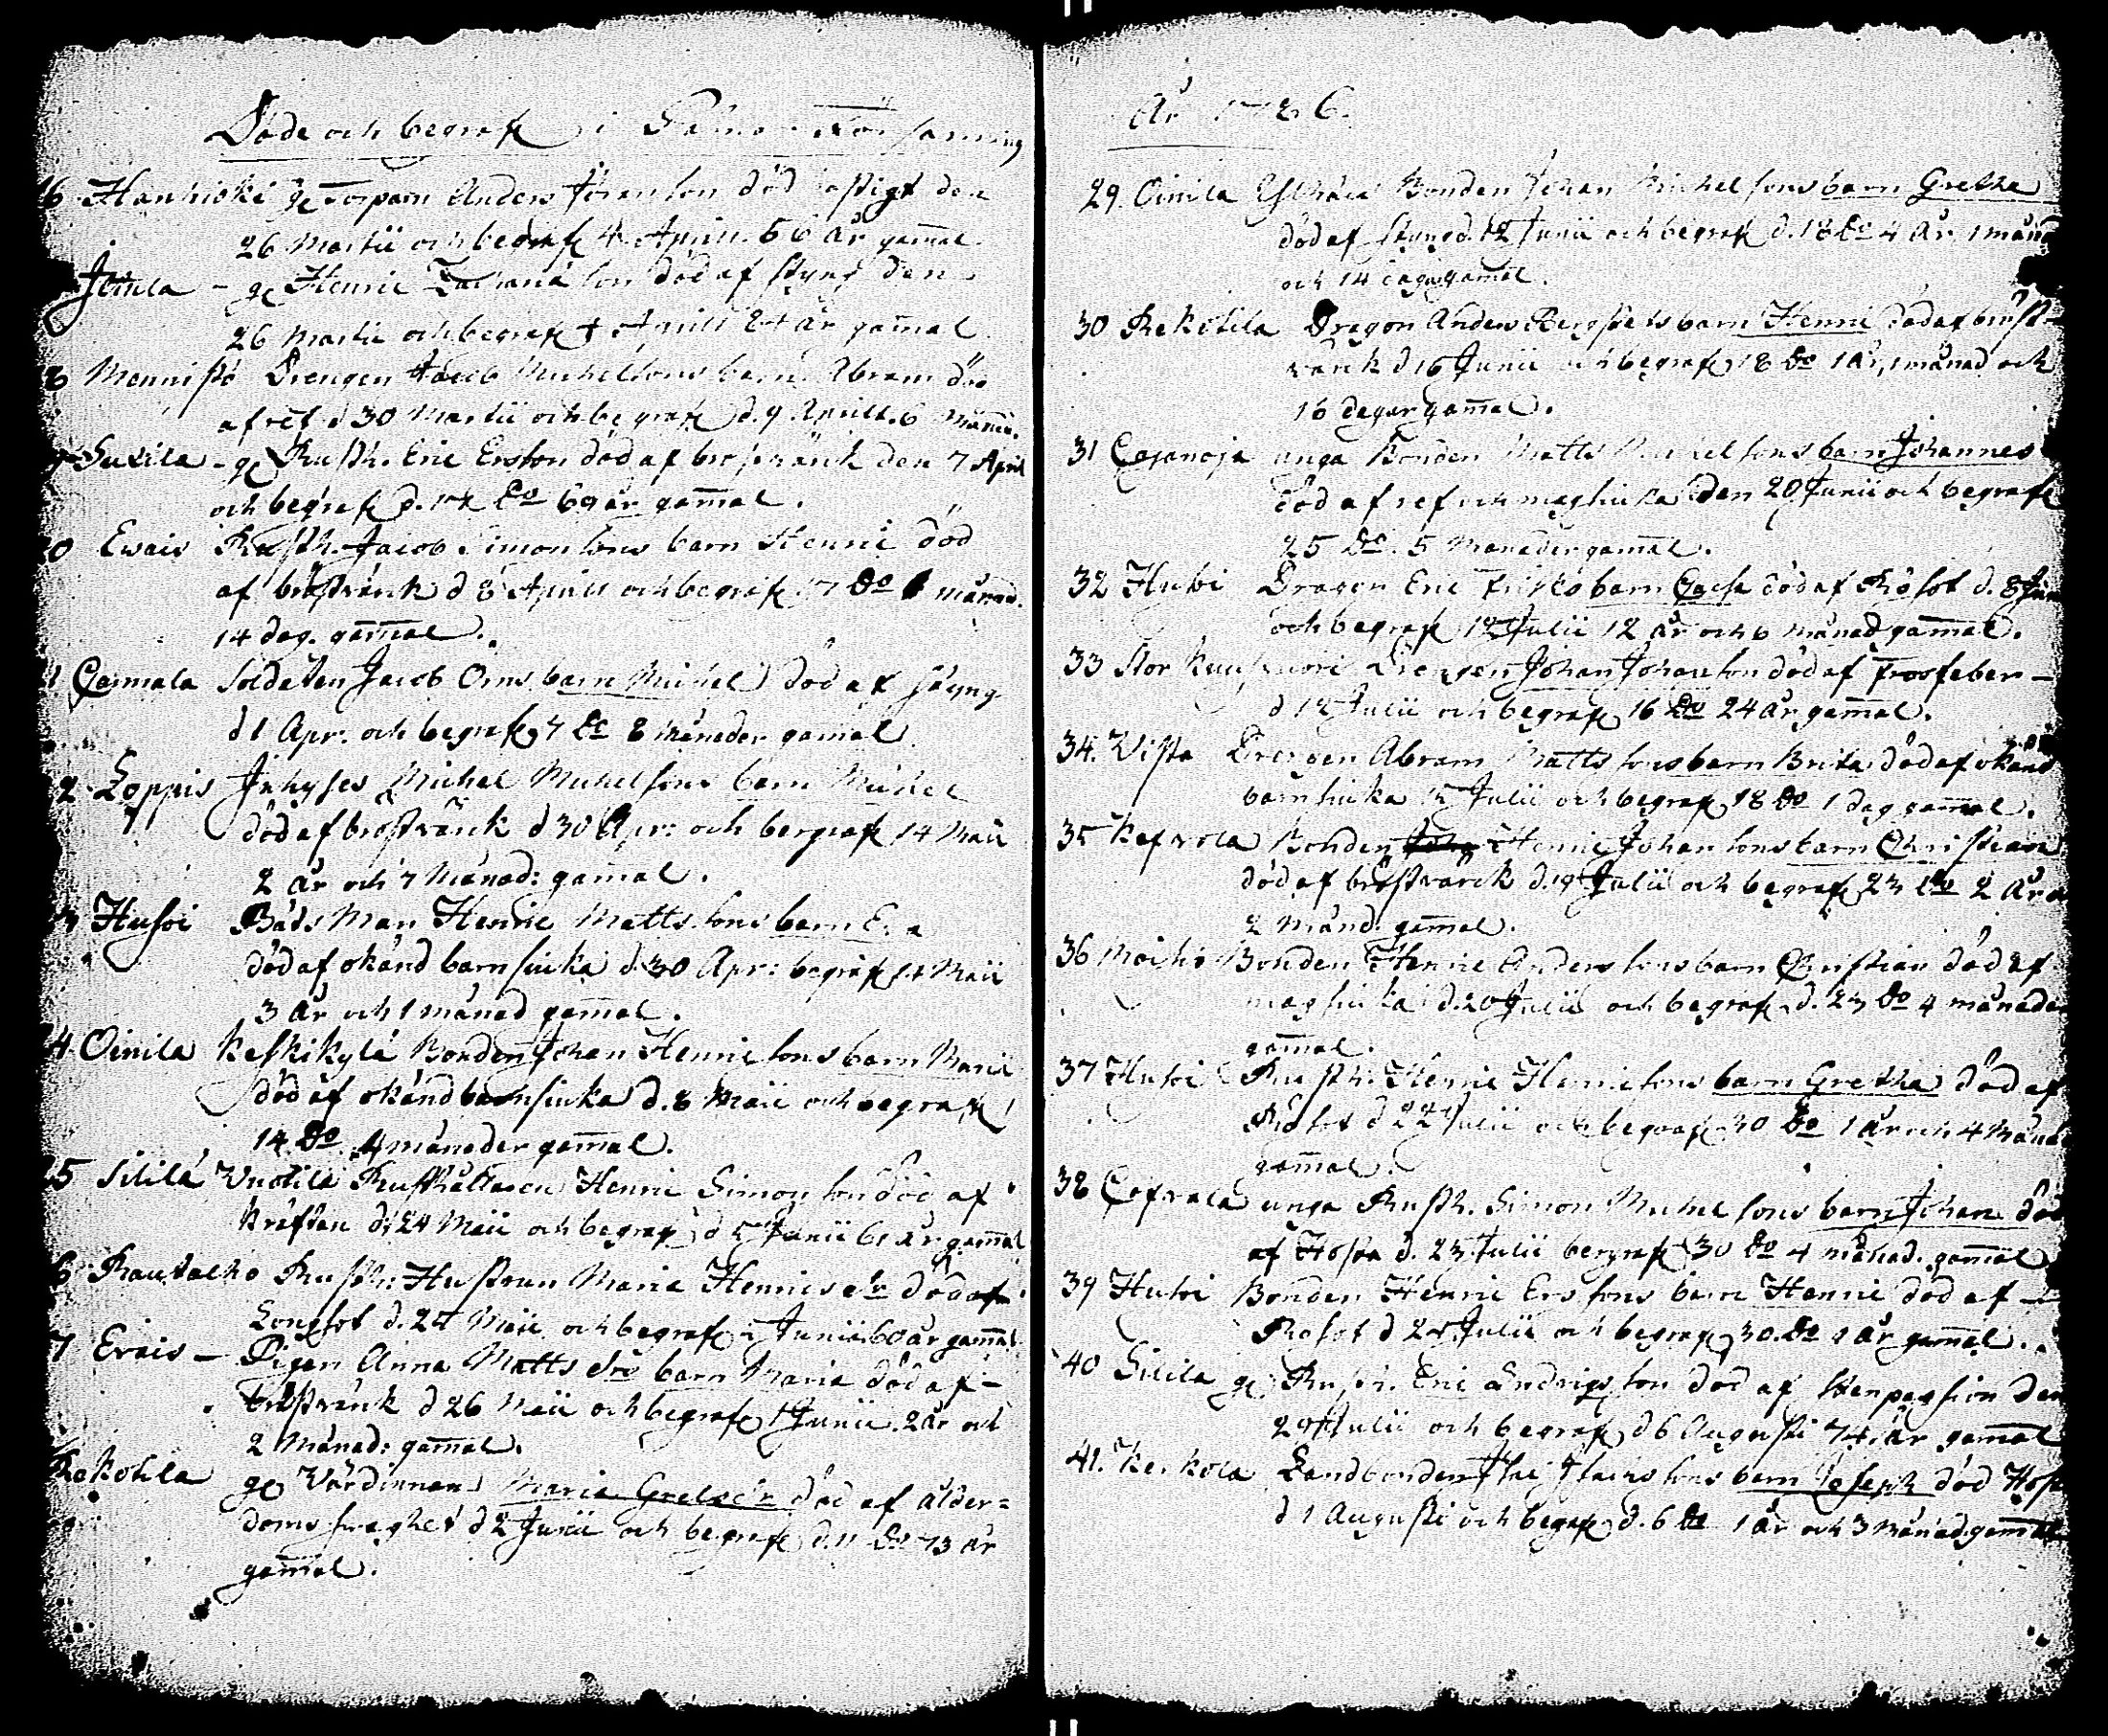 Döde och begrafne i Församling
16 Hanniski ge Torparn Anders Johanson död hastigt den
26 Martii och begrafn 4 Aprill. 56 år gamal.
ge Henric son död af styng den
26 Martii och begrafn 4 Aprill 24 år gamal
8 Mennistö Drengen Jacob Michelsons barn Abram död
af ref d 30 Martii och begrafn d. 9 Aprill. 6 månad.
Suxila - ge Rusth. Eric Ersson död af bröstvärck den 7 April
och begrafn d. 17 Do 69 år gamal.
0 Evais Rusth. Jacob Simonsons barn Henric död
af bröstvärck d 8 Aprill och begrafn 17 Do månad.
14 dag. gamal.
1 Carmala Soldaten Jacob Orns barn Michel död af styng
d 1 Apr: och begrafn 7 Do 8 månader gamal
2 Loppis Juhyses Michel Michelsons barn Michel
död af bröstvärck d 30 Apr: och begrafn 14 Maii
2 år och 7 Månad: gamal.
3 Husoi Båds Man Henric Mattssons barn
död af okänd barnsiuka d. 30 Apr: begrafn 14 Maii
3 år och 1 månad gamal.
4 Oinila Keskikylä Bonden Johan Henricsons barn Maria
död af okänd barnsiuka d. 8 Maii och begrafn
14 Do. 4 månader gamal.
25 Sililä Unotila Rusthållaren Henric Simonson död af
kräftan d. 24 Maii och begrafn d 5 Junii 61 år gamal
6 Rautalho Rusth: Hustrun Maria Henricsdr död af
Longsot d. 24 Maii och begrafn Junii 60 år gamal
7 Evais - Pigan Anna Mattsdrs barn Maria död af
bröstvärck d 26 Maii och begrafn 1 Junii. 2 år och
2 Månad: gamal.
Rekotila ge Värdinnan Maria Grelsdr död af ålder=
doms swaghet d 2 Junii och begrafn d. 11 Do 73 år
gamal.
År 1786.
29. Oinila Bonden Johan Michelsons barn Gretha
död af styng d. 12 Junii och begrafn d. 18 Do 4 år 1 månad
och 14 dagar gamal.
30 Rekotila Dragon Anders Bergstets barn Henric död af bröst-
värck d 16 Junii och begrafn 18 Do 1 år, 1 månad och
16 dagar gamal.
31 Cojanoja unga Bonden Matts Michelsons barn Johannes
död af ref och magsiuka den 20 Junii och begrafn
25 Do. 5 Månader gamal.
32 Husoi Dragon Eric Friskes barn Cajsa död af Rösot d. 8
och begrafn 12 Julii 12 år och 6 månad gamal.
33 Stor Drengen Johan Johanson död af Frosfeber -
d 12 Julii och begrafn 16 Do 24 år gamal.
34. Vista Drengen Abram Mattssons barn Brita död af okänd
barnsiuka 17 Julii och begrafn 18 Do 1 dag gamal.
35 Kefvola Bonden Henric Johansons barn Christian
död af bröstvärck d. 19 Julii och begrafn 23 Do 2 år
2 månd: gamal.
36 Moisio Bonden Henric Andersons barn Christian död af
magsiuka d. 20 Julii och begrafn d. 23 Do 4 månader
gamal.
37 Husoi Rusth. Henric Henricsons barn Gretha död af
Rösot d 22 Julii och begrafn 30 Do 1 år och 4 Månad
gamal.
38 Cofvala unga Rusth. Simon Michelsons barn Johan död
af Hosta d. 23 Julii begrafn 30 Do 4 månad. gamal
39 Husoi Bonden Henric Erssons barn Henric död af -
Rosot d 24 Julii och begrafn 30. Do 1 år gamal.
40 Sicila ge Rusth. Eric Endrigsson död af Stenpassion den
29 Julii och begrafn d 6 Augusti 74. år gamal
41. Kerkola Landbonden sons barn Joseph död Hosta
d 1 Augusti och begrafn d. 6 Do 1 år och 3 Månad gamal